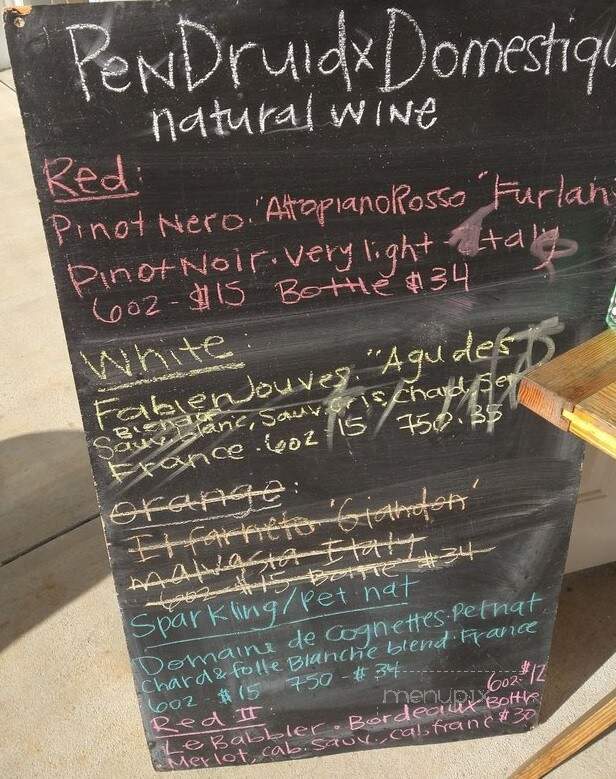 PenDruid x Domestiq
natural wine
Red:
Pinot Nero. "Altopiano Rosso" Furlan
Pinot Noir. very light - Italy
6oz - $15 Bottle $34
White:
Fabien Jouves. "Agudes"
Blend of
Sauv. Blanc, Sauv. Gris, Chard, Sem
France. 6oz 15 750. 35
orange:
El farneto 'Giandon'
malvasia Italy
6oz $15 Bottle $34
Sparkling/Pet nat
Domaine de Cognettes. Petnat
Chard & folle Blanche blend. France
6oz $15 750 - $34
menupix
Red II 6oz. $12
Le Babbler. Bordeaux Bottle
Merlot, cab. sauv., cab franc $30